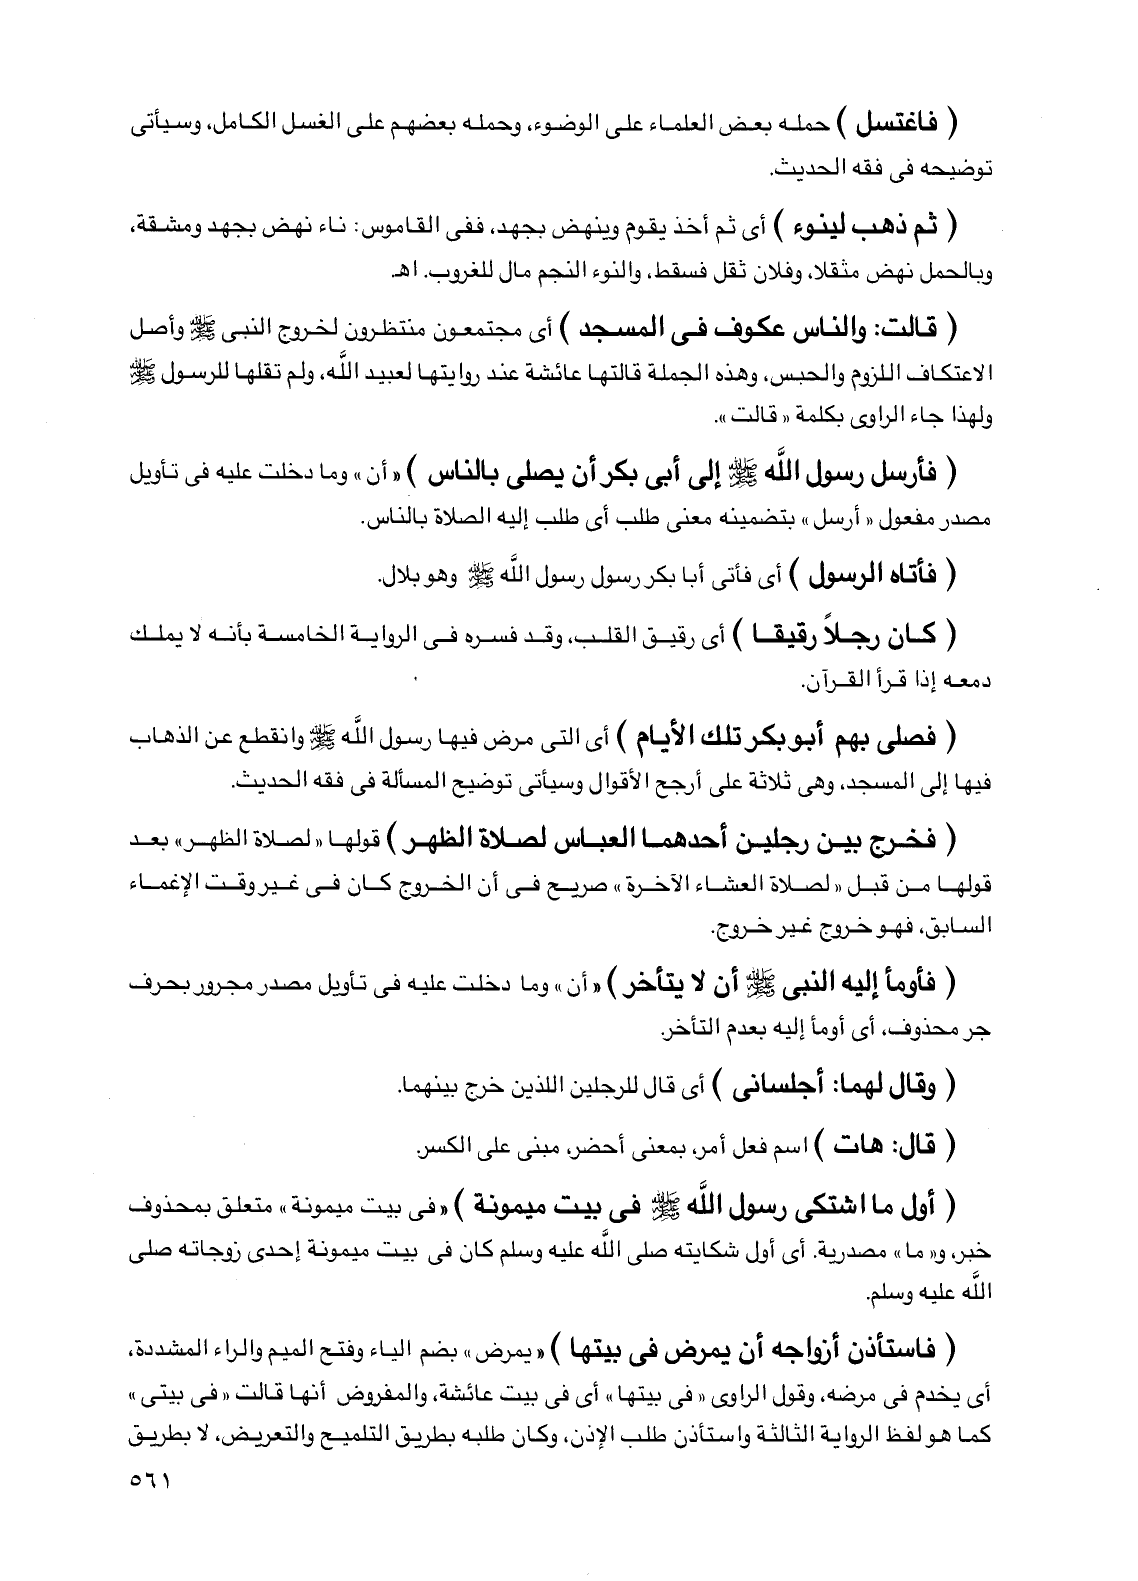 ( فاغتسل ) حمله بعض العلماء على الوضوء، وحمله بعضهم على الغسل الكامل، وسيأتى
توضيحه فى فقه الحديث.
( ثم ذهب لينوء ) أى ثم أخذ يقوم وينهض بجهد، ففى القاموس: ناء نهض بجهد ومشقة،
وبالحمل نهض مثقلا، وفلان ثقل فسقط، والنوء النجم مال للغروب. اهـ
( قالت: والناس عكوف فى المسجد ) أى مجتمعون منتظرون لخروج النبى ﷺ وأصل
الاعتكاف اللزوم والحبس، وهذه الجملة قالتها عائشة عند روايتها لعبيد اللَّه، ولم تقلها للرسول ﷺ
ولهذا جاء الراوى بكلمة « قالت ».
( فأرسل رسول اللَّه ﷺ إلى أبى بكر أن يصلى بالناس ) « أن » وما دخلت عليه فى تأويل
مصدر مفعول « أرسل » بتضمينه معنى طلب أى طلب إليه الصلاة بالناس.
( فأتاه الرسول ) أى فأتى أبا بكر رسول رسول اللَّه ﷺ وهو بلال.
( كـان رجـلاً رقيقـا ) أى رقيـق القلـب، وقـد فسـره فـى الروايـة الخامسـة بأنـه لا يملـك
دمعـه إذا قـرأ القـرآن.
( فصلى بهم أبو بكر تلك الأيام ) أى التى مرض فيها رسول اللَّه ﷺ وانقطع عن الذهاب
فيها إلى المسجد، وهى ثلاثة على أرجح الأقوال وسيأتى توضيح المسألة فى فقه الحديث.
( فخـرج بيـن رجليـن أحدهمـا العبـاس لصـلاة الظهـر ) قولهـا « لصـلاة الظهـر » بعـد
قولهـا مـن قبـل « لصـلاة العشـاء الآخـرة » صريـح فـى أن الخـروج كـان فـى غـير وقـت الإغمـاء
السـابق، فهـو خـروج غـير خـروج.
( فأومأ إليه النبى ﷺ أن لا يتأخر ) « أن » وما دخلت عليه فى تأويل مصدر مجرور بحرف
جر محذوف، أى أومأ إليه بعدم التأخر.
( وقال لهما: أجلسانى ) أى قال للرجلين اللذين خرج بينهما.
( قال: هات ) اسم فعل أمر، بمعنى أحضر، مبنى على الكسر.
( أول ما اشتكى رسول اللَّه ﷺ فى بيت ميمونة ) « فى بيت ميمونة » متعلق بمحذوف
خبر، و« ما » مصدرية. أى أول شكايته صلى اللَّه عليه وسلم كان فى بيت ميمونة إحدى زوجاته صلى
اللَّه عليه وسلم.
( فاستأذن أزواجه أن يمرض فى بيتها ) « يمرض » بضم الياء وفتح الميم والراء المشددة،
أى يخدم فى مرضه، وقول الراوى « فى بيتها » أى فى بيت عائشة، والمفروض أنها قالت « فى بيتى »
كما هو لفظ الرواية الثالثة واستأذن طلب الإذن، وكان طلبه بطريق التلميح والتعريض، لا بطريق
٥٦١